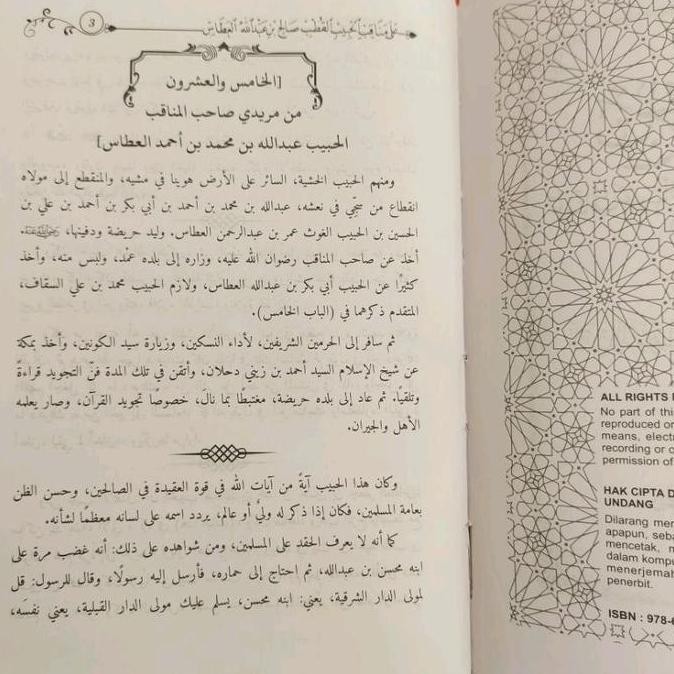 على مناقب الحبيب القطب صالح بن عبدالله العطاس
3
[الخامس والعشرون
من مريدي صاحب المناقب
الحبيب عبدالله بن محمد بن أحمد العطاس]
ومنهم الحبيب الخشية، السائر على الأرض هوينا في مشيه، والمنقطع إلى مولاه
انقطاع من سجّي في نعشه، عبدالله بن محمد بن أحمد بن أبي بكر بن أحمد بن علي بن
الحسين بن الحبيب الغوث عمر بن عبدالرحمن العطاس. وليد حريضة ودفينها،
أخذ عن صاحب المناقب رضوان الله عليه، وزاره إلى بلده عمْد، ولبس منه، وأخذ
كثيرًا عن الحبيب أبي بكر بن عبدالله العطاس، ولازم الحبيب محمد بن علي السقاف،
المتقدم ذكرهما في (الباب الخامس).
ثم سافر إلى الحرمين الشريفين، لأداء النسكين، وزيارة سيد الكونين، وأخذ بمكة
عن شيخ الإسلام السيد أحمد بن زيني دحلان، وأتقن في تلك المدة فنّ التجويد قراءةً
وتلقيًا. ثم عاد إلى بلده حريضة، مغتبطًا بما نالَ، خصوصًا تجويد القرآن، وصار يعلمه
الأهل والجيران.
وكان هذا الحبيب آيةً من آيات الله في قوة العقيدة في الصالحين، وحسن الظن
بعامة المسلمين، فكان إذا ذكر له وليٌ أو عالم، يردد اسمه على لسانه معظمًا لشأنه.
كما أنه لا يعرف الحقد على المسلمين، ومن شواهده على ذلك: أنه غضب مرة على
ابنه محسن بن عبدالله، ثم احتاج إلى حماره، فأرسل إليه رسولًا، وقال للرسول: قل
لمولى الدار الشرقية، يعني: ابنه محسن، يسلم عليك مولى الدار القبلية، يعني نفسَه،
ALL RIGHTS
No part of thi
reproduced or
means, elect
recording or
permission of
HAK CIPTA D
UNDANG
Dilarang mer
apapun, seba
mencetak, m
dalam kompu
menerjemah
penerbit.
ISBN : 978-6